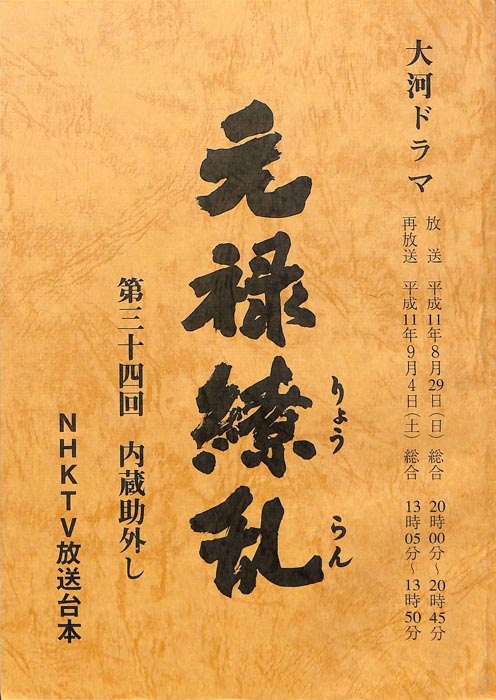 大河ドラマ
放送 平成11年8月29日(日) 総合 20時00分~20時45分
再放送 平成11年9月4日(土) 総合 13時05分~13時50分
元禄繚乱
りょう らん
第三十四回 内蔵助外し
NHKTV放送台本